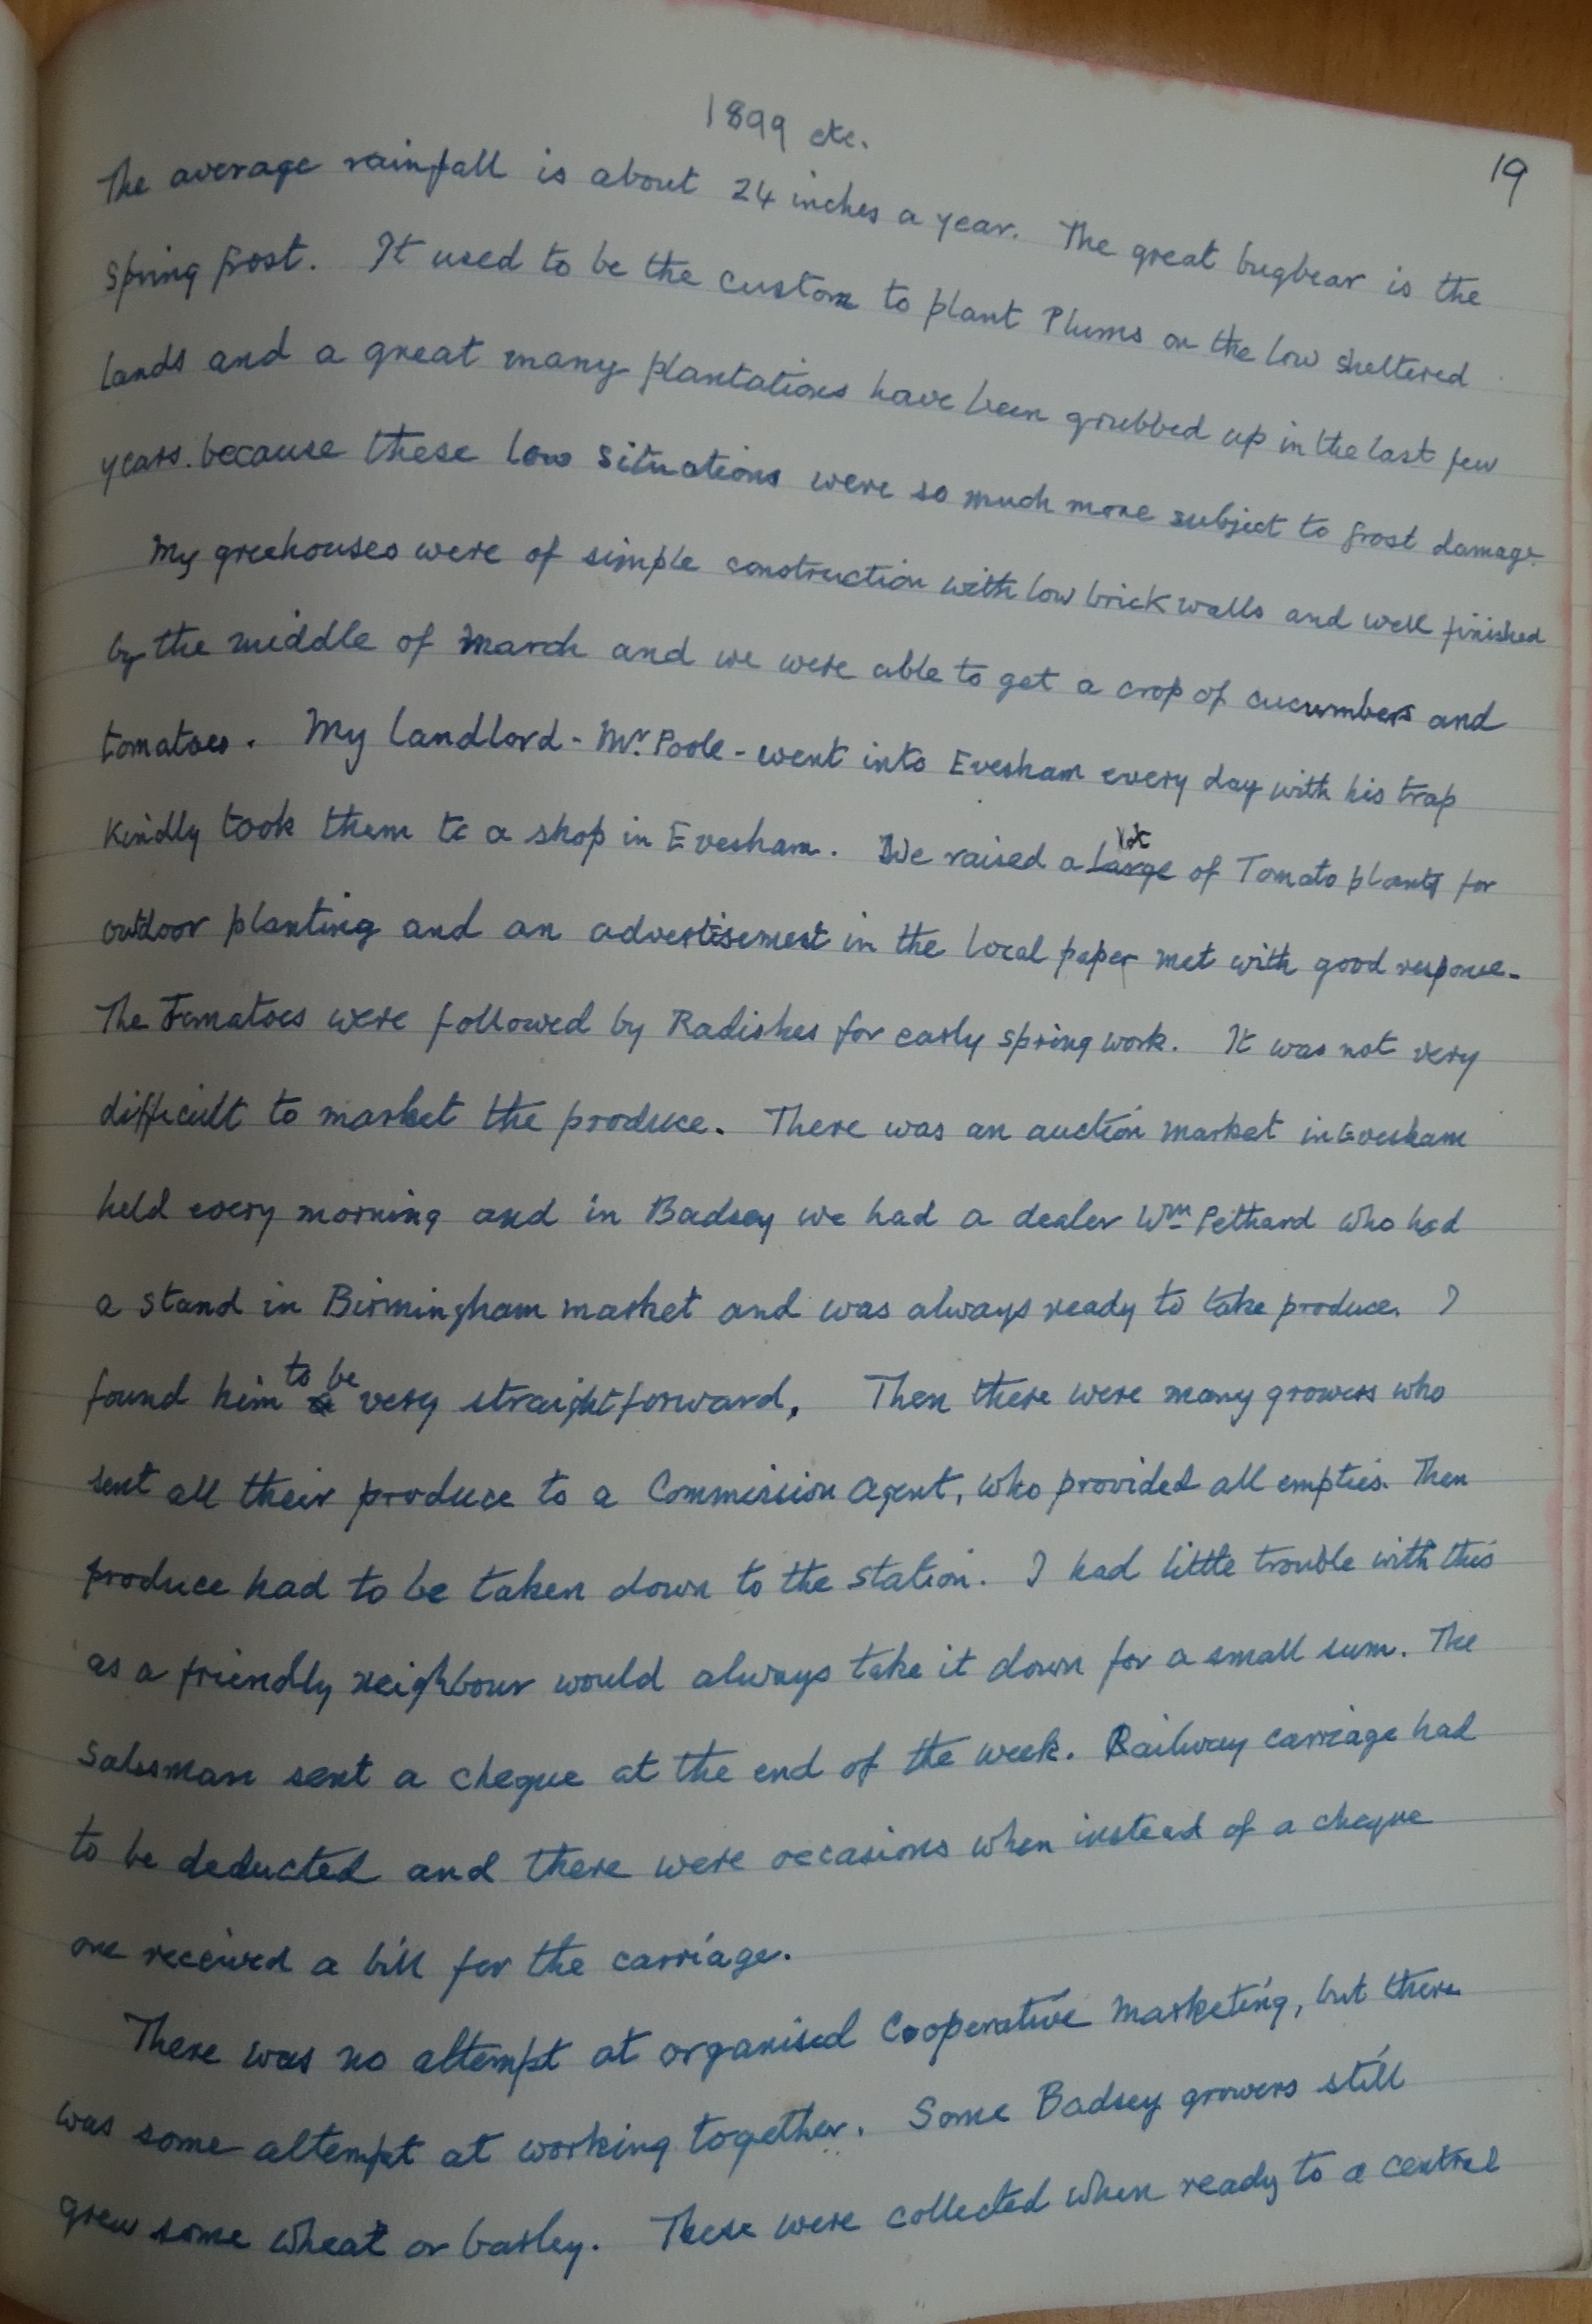 1899 etc.
19
The average rainfall is about 24 inches a year. The great bugbear is the
spring frost. It used to be the custom to plant Plums on the low sheltered
lands and a great many plantations have been grubbed up in the last few
years. because these low situations were so much more subject to frost damage.
My greehouses were of simple construction with low brick walls and well finished
by the middle of March and we were able to get a crop of cucumbers and
tomatoes. My landlord - Mr. Poole - went into Evesham every day with his trap
kindly took them to a shop in Evesham. We raised a large lot of Tomato plants for
outdoor planting and an advertisement in the local paper met with good response.
The Tomatoes were followed by Radishes for early spring work. It was not very
difficult to market the produce. There was an auction market in Evesham
held every morning and in Badsey we had a dealer Wm Pethard who had
a stand in Birmingham market and was always ready to take produce. I
found him to be very straightforward. Then there were many growers who
sent all their produce to a Commission Agent, who provided all empties. Then
produce had to be taken down to the station. I had little trouble with this
as a friendly neighbour would always take it down for a small sum. The
Salesman sent a cheque at the end of the week. Railway carriage had
to be deducted and there were occasions when instead of a cheque
one received a bill for the carriage.
There was no attempt at organised Cooperative Marketing, but there
was some attempt at working together. Some Badsey growers still
grew some wheat or barley. These were collected when ready to a central